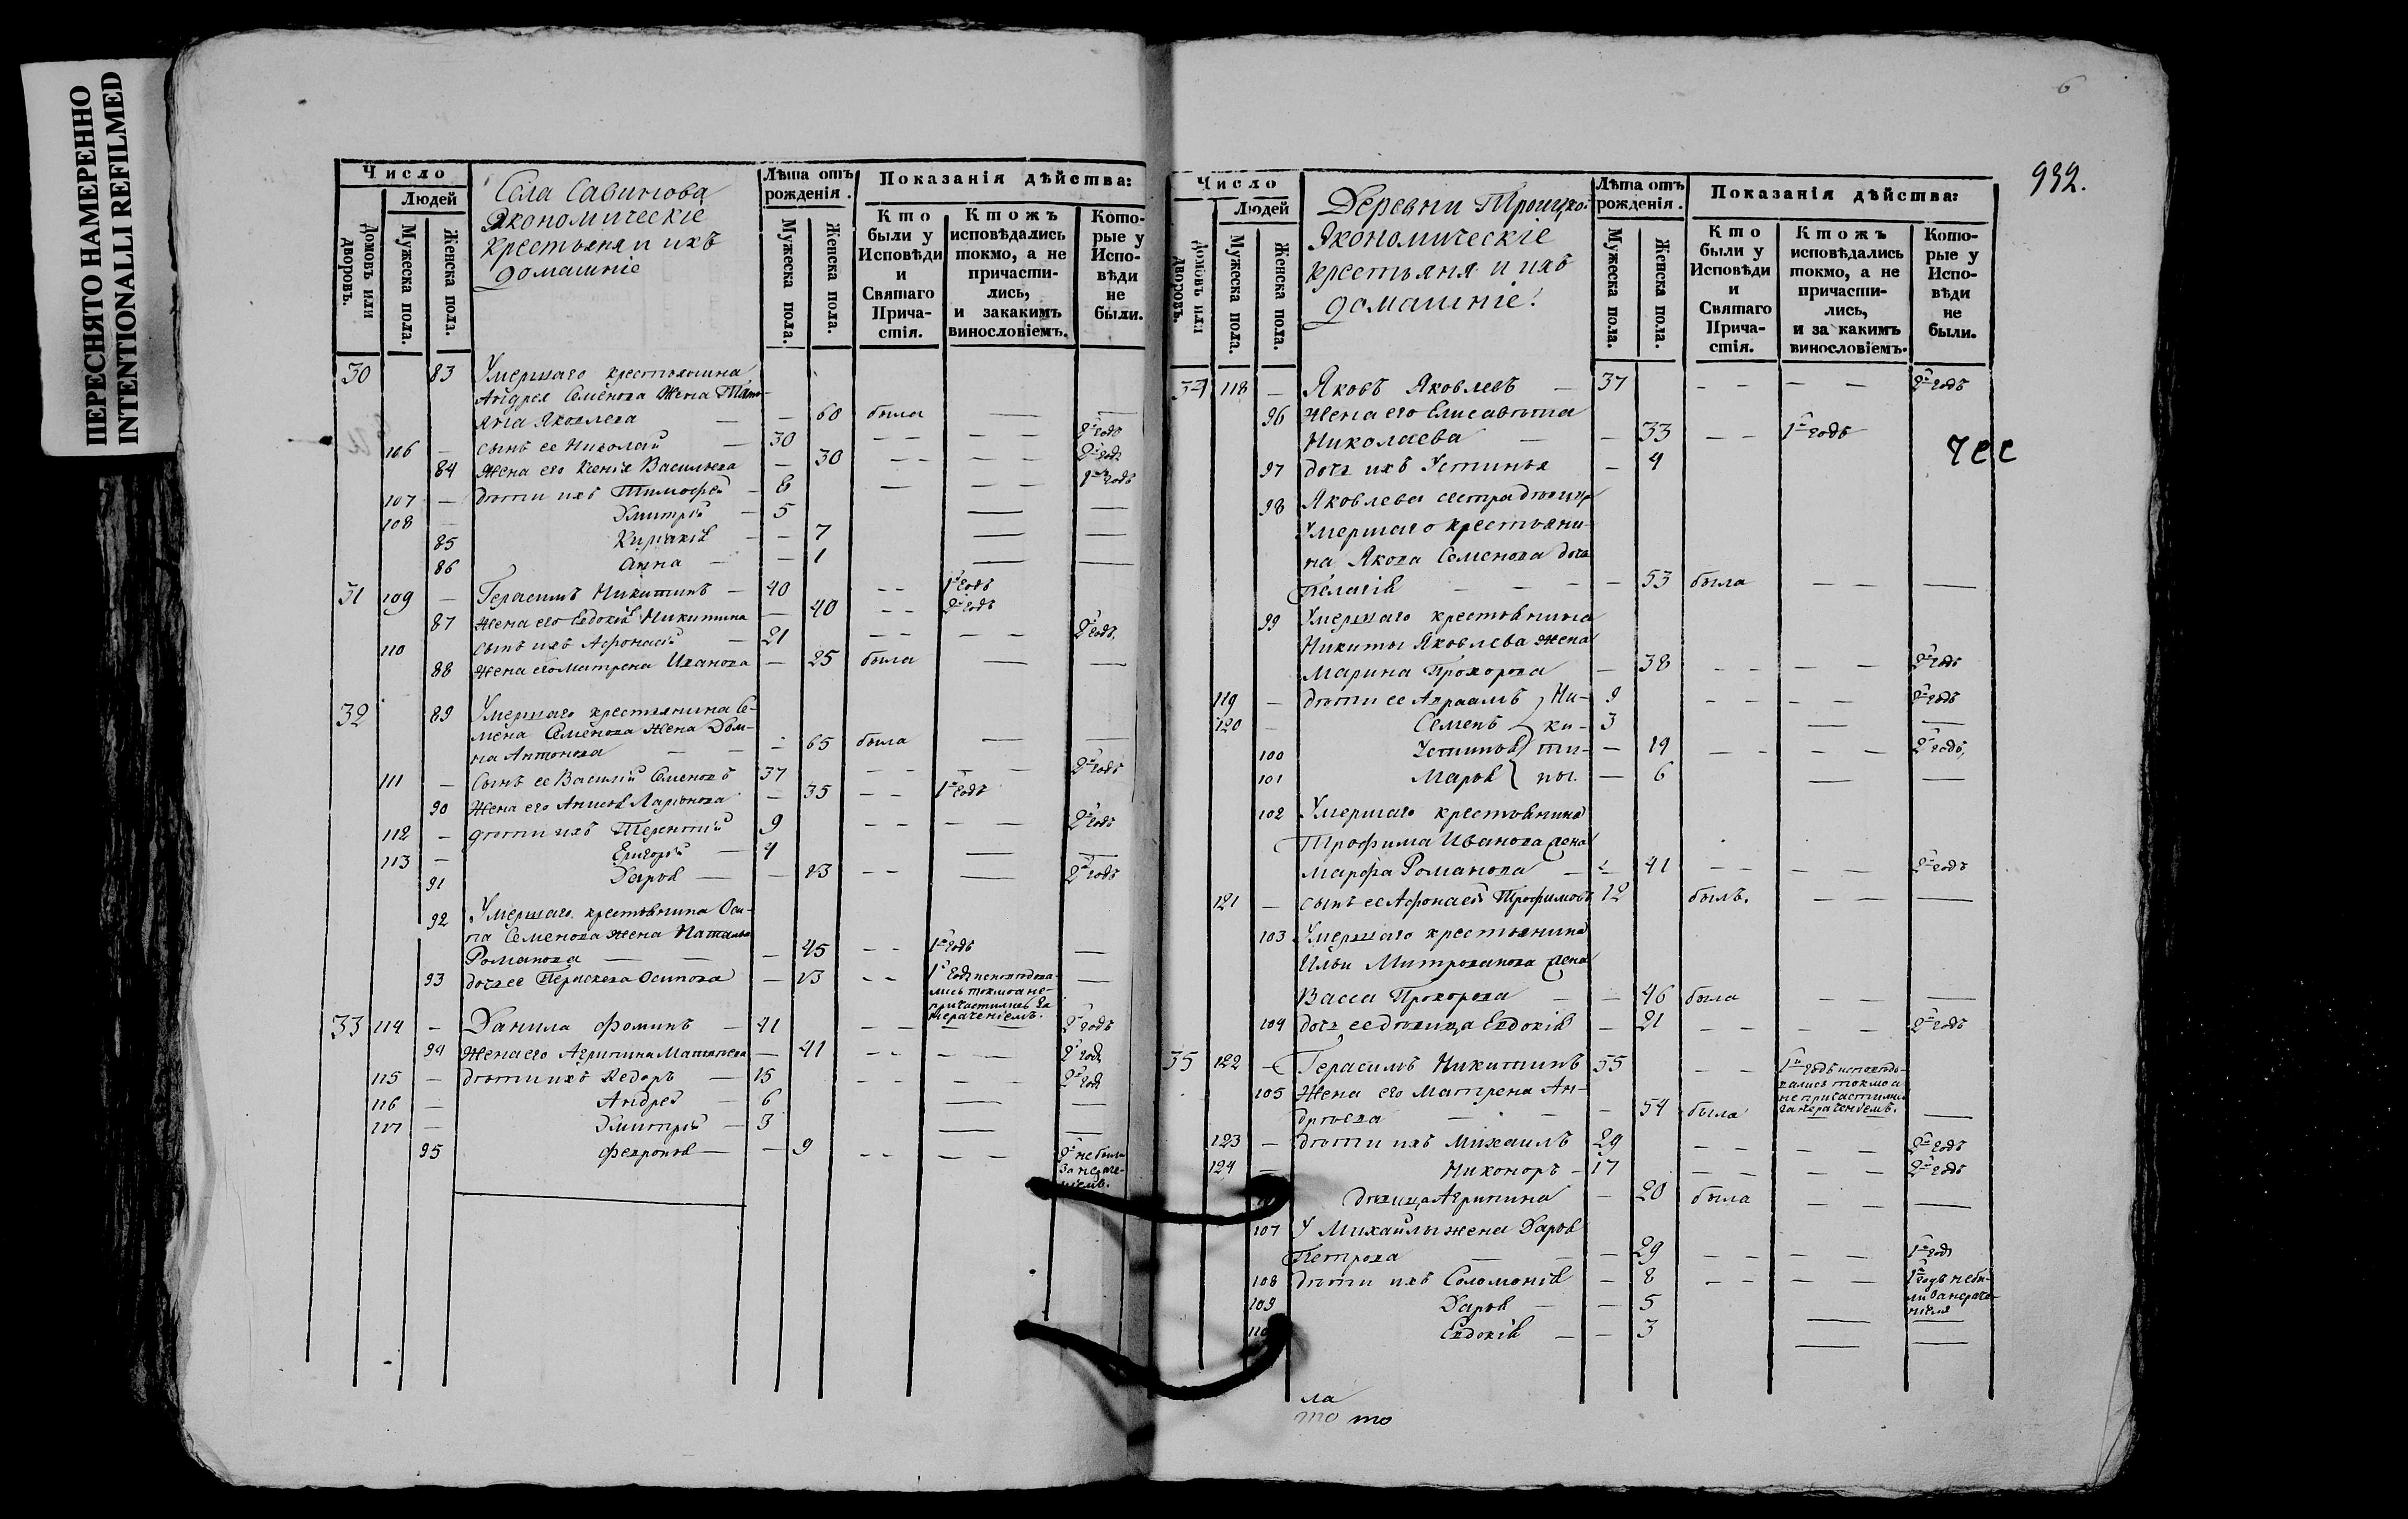 ПЕРЕСНЯТО НАМЕРЕННО
INTENTIONALLI REFILMED
Число
Людей
Домовъ или дворовъ.
Мужеска пола.
Женска пола.
Села Савинова
Экономическіе
крестьяня и ихъ
домашніе
Лѣта отъ рожденія.
Мужеска пола.
Женска пола.
Показанія дѣйства:
Кто были у Исповѣди и Святаго Причастія.
Ктожъ исповѣдались токмо, а не причастились, и закакимъ винословіемъ.
Которые у Исповѣди не были.
30 83 Умершаго крестьянина
Андрея Семенова жена Тать-
яна Яковлева — 60 была — —
106 — сынъ ее Николай — 30 — — — — 2й годъ
84 жена его Ксенія Васильева — 30 — — — — 2й годъ
107 — дѣти ихъ Тимофей — 8 — — — 2й годъ
108 — Дмитрій — 5 — —
85 — — 7 — —
86 Анна — — 1 — —
31 109 — Герасимъ Никитинъ — 40 — — 1й годъ
87 жена его Евдокія Никитина — 40 — — 2й годъ
110 сынъ ихъ Афонасій — 21 — — — — 2й годъ.
88 жена его Матрена Иванова — 25 была — —
32 89 Умершаго крестьянина Се-
мена Семенова жена Дом-
на Антонова — — — 65 была — —
111 — Сынъ ее Василій Семеновъ 37 — — — — 2й годъ
90 жена его Анисья Ларіонова — 35 — — 1й годъ
112 — дѣти ихъ Терентій 9 — — — — 2й годъ
113 — Григорій — 4 — —
91 Дарья — — 13 — — — 2й годъ
92 Умершаго крестьянина Оси-
па Семенова жена Наталья
Романова — — — 45 — — 1й годъ —
93 дочь ее Параскева Осипова — 13 — — 1й годъ исповѣдова-
лись токмо а не-
причастились за
нераченіемъ. —
33 114 — Данила Фоминъ — 41 — — — 2й годъ
94 жена его Агрипина Матвѣева — 41 — — — — 2й годъ
115 — дѣти ихъ Ѳедоръ — 15 — — — — 2й годъ
116 — Андрей — 6 — —
117 — Дмитрій — 3 — —
95 Февронья — — 9 — — — — 2й не была
за нераче-
ніемъ.
6
932.
Число
Людей
Домовъ или дворовъ.
Мужеска пола.
Женска пола.
Деревни Троицкой
Экономическіе
крестьяня и ихъ
домашніе.
Лѣта отъ рожденія.
Мужеска пола.
Женска пола.
Показанія дѣйства:
Кто были у Исповѣди и Святаго Причастія.
Ктожъ исповѣдались токмо, а не причастились, и за какимъ винословіемъ.
Которые у Исповѣди не были.
34 118 — Яковъ Яковлевъ — 37 — — — — 2й годъ
96 жена его Елисавета
Николаева — — 33 — — 1й годъ
97 дочь ихъ Устинья — 4
98 Яковлева сестра дѣвица
Умершаго крестьяни-
на Якова Семенова дочь
Пелагія — — — — 53 была — — —
99 Умершаго крестьянина
Никиты Яковлева жена
Марина Прохорова — 38 — — — — 2й годъ
119 — дѣти ее Авраамъ Ни- 9 — — — — 2й годъ
120 — Семенъ ки- 3 — —
100 Устинья ти- — 19 — — — — 2й годъ,
101 Марья ны. — 6 — —
102 Умершаго крестьянина
Трофима Иванова жена
Марфа Романова — — 41 — — — — 2й годъ
121 — сынъ ее Афонасей Трофимовъ 12 былъ. — — —
103 Умершаго крестьянина
Ильи Митрофанова жена
Васса Прохорова — — 46 была — — —
104 дочь ее дѣвица Евдокія — 21 — — — — 2й годъ
35 122 — Герасимъ Никитинъ 55 — — 1й годъ исповѣдо-
вались токмо а
не причастились
за нераченіемъ.
105 жена его Матрена Ан-
дрѣева — — — 54 была —
123 — дѣти ихъ Михаилъ 29 — — — — 2й годъ
124 — Никоноръ — 17 — — — — 2й годъ
дѣвица Агрипина — 20 была — — —
107 У Михайлы жена Дарья
Петрова — — — 29 — — — — 1й годъ
108 дѣти ихъ Соломонія — 8 — — — — 1й годъ не бы-
ли за нераче-
ніемъ
109 Дарья — — 5 — —
110 Евдокія — — 3 — —
ла
то то